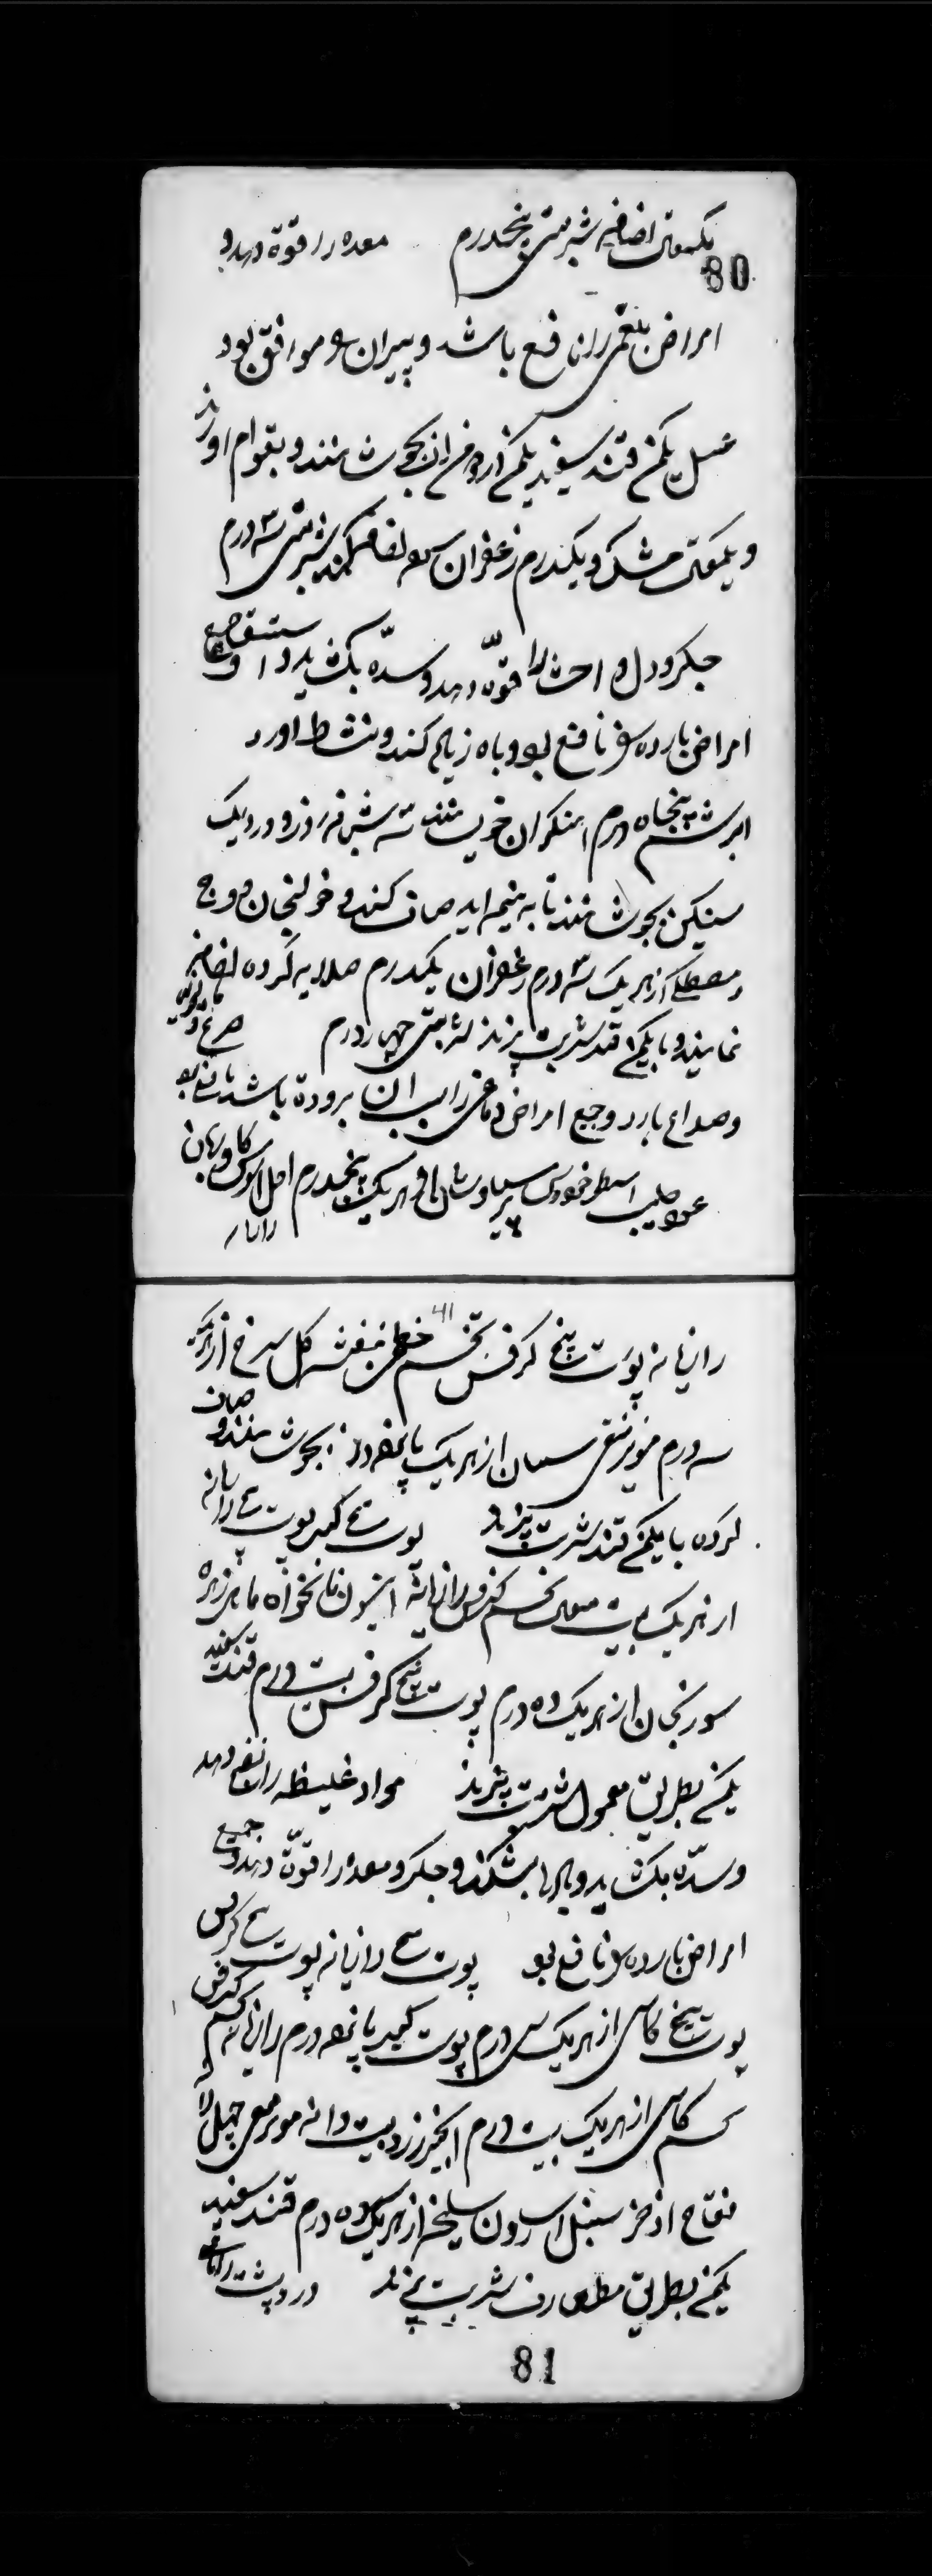 یکمثقال اضافه شربتی پنجدرم معده را قوّة دهد و
80
امراض بلغمی را نافع باشد و پیران را موافق بود
عسل یکمن قند سفید یکمن بجوشانند و بقوام اورند
و یکمثقال مشک و یکدرم زعفران اضافه کنند شربتی سه درم
جگر و دل و احشا را قوّة دهد و سدّه بگشاید و استسقا و جمیع
امراض بارده را نافع بود و باه زیاده کند و نشاط اورد
ابریشم پنجاه درم سه شبانه روز و در دیک
سنکین بجوشانند تا به نیمه اید صاف کنند و خولنجان و وج
و مصطکی از هر یک سه درم زعفران یکدرم صلایه کرده اضافه
نمایند و با یکمن قند شربت پزند شربتی چهار درم صرع و مالیخولیا
و صداع بارد و جمیع امراض دماغی را سبب ان برودة باشد نافع بود
عود صلیب اسطوخودوس پرسیاوشان از هر یک پنجدرم اصل السوس کاوزبان
رازیانه
41
رازیانه پوست بیخ کرفس تخم خطمی بنفشه کل سرخ از هر یک
سه درم مویز منقی سپستان از هر یک پانزده درم بجوشانند و صاف
کرده با یکمن قند شربت پزند پوست بیخ کبر پوست بیخ رازیانه
از هر یک بیست مثقال تخم کرفس رازیانه انیسون نانخواه ماهی زهره
سورنجان از هر یک ده درم پوست بیخ کرفس بیست درم قند سفید
یکمن بطریق معمول شربت پزند مواد غلیظه را نضج دهد
و سدّه بگشاید و بادها بشکند و جگر و معده را قوّة دهد و جمیع
امراض بارده را نافع بود پوست بیخ رازیانه پوست بیخ کرفس
پوست بیخ کاسنی از هر یک سی درم پوست بیخ کبر پانزده درم رازیانه تخم کرفس
تخم کاسنی از هر یک بیست درم انجیر زرد بیست دانه مویز منقی چهل درم
فقاح اذخر سنبل اسارون سلیخه از هر یک ده درم قند سفید
یکمن بطریق متعارف شربت پزند درد پشت را نافع
81